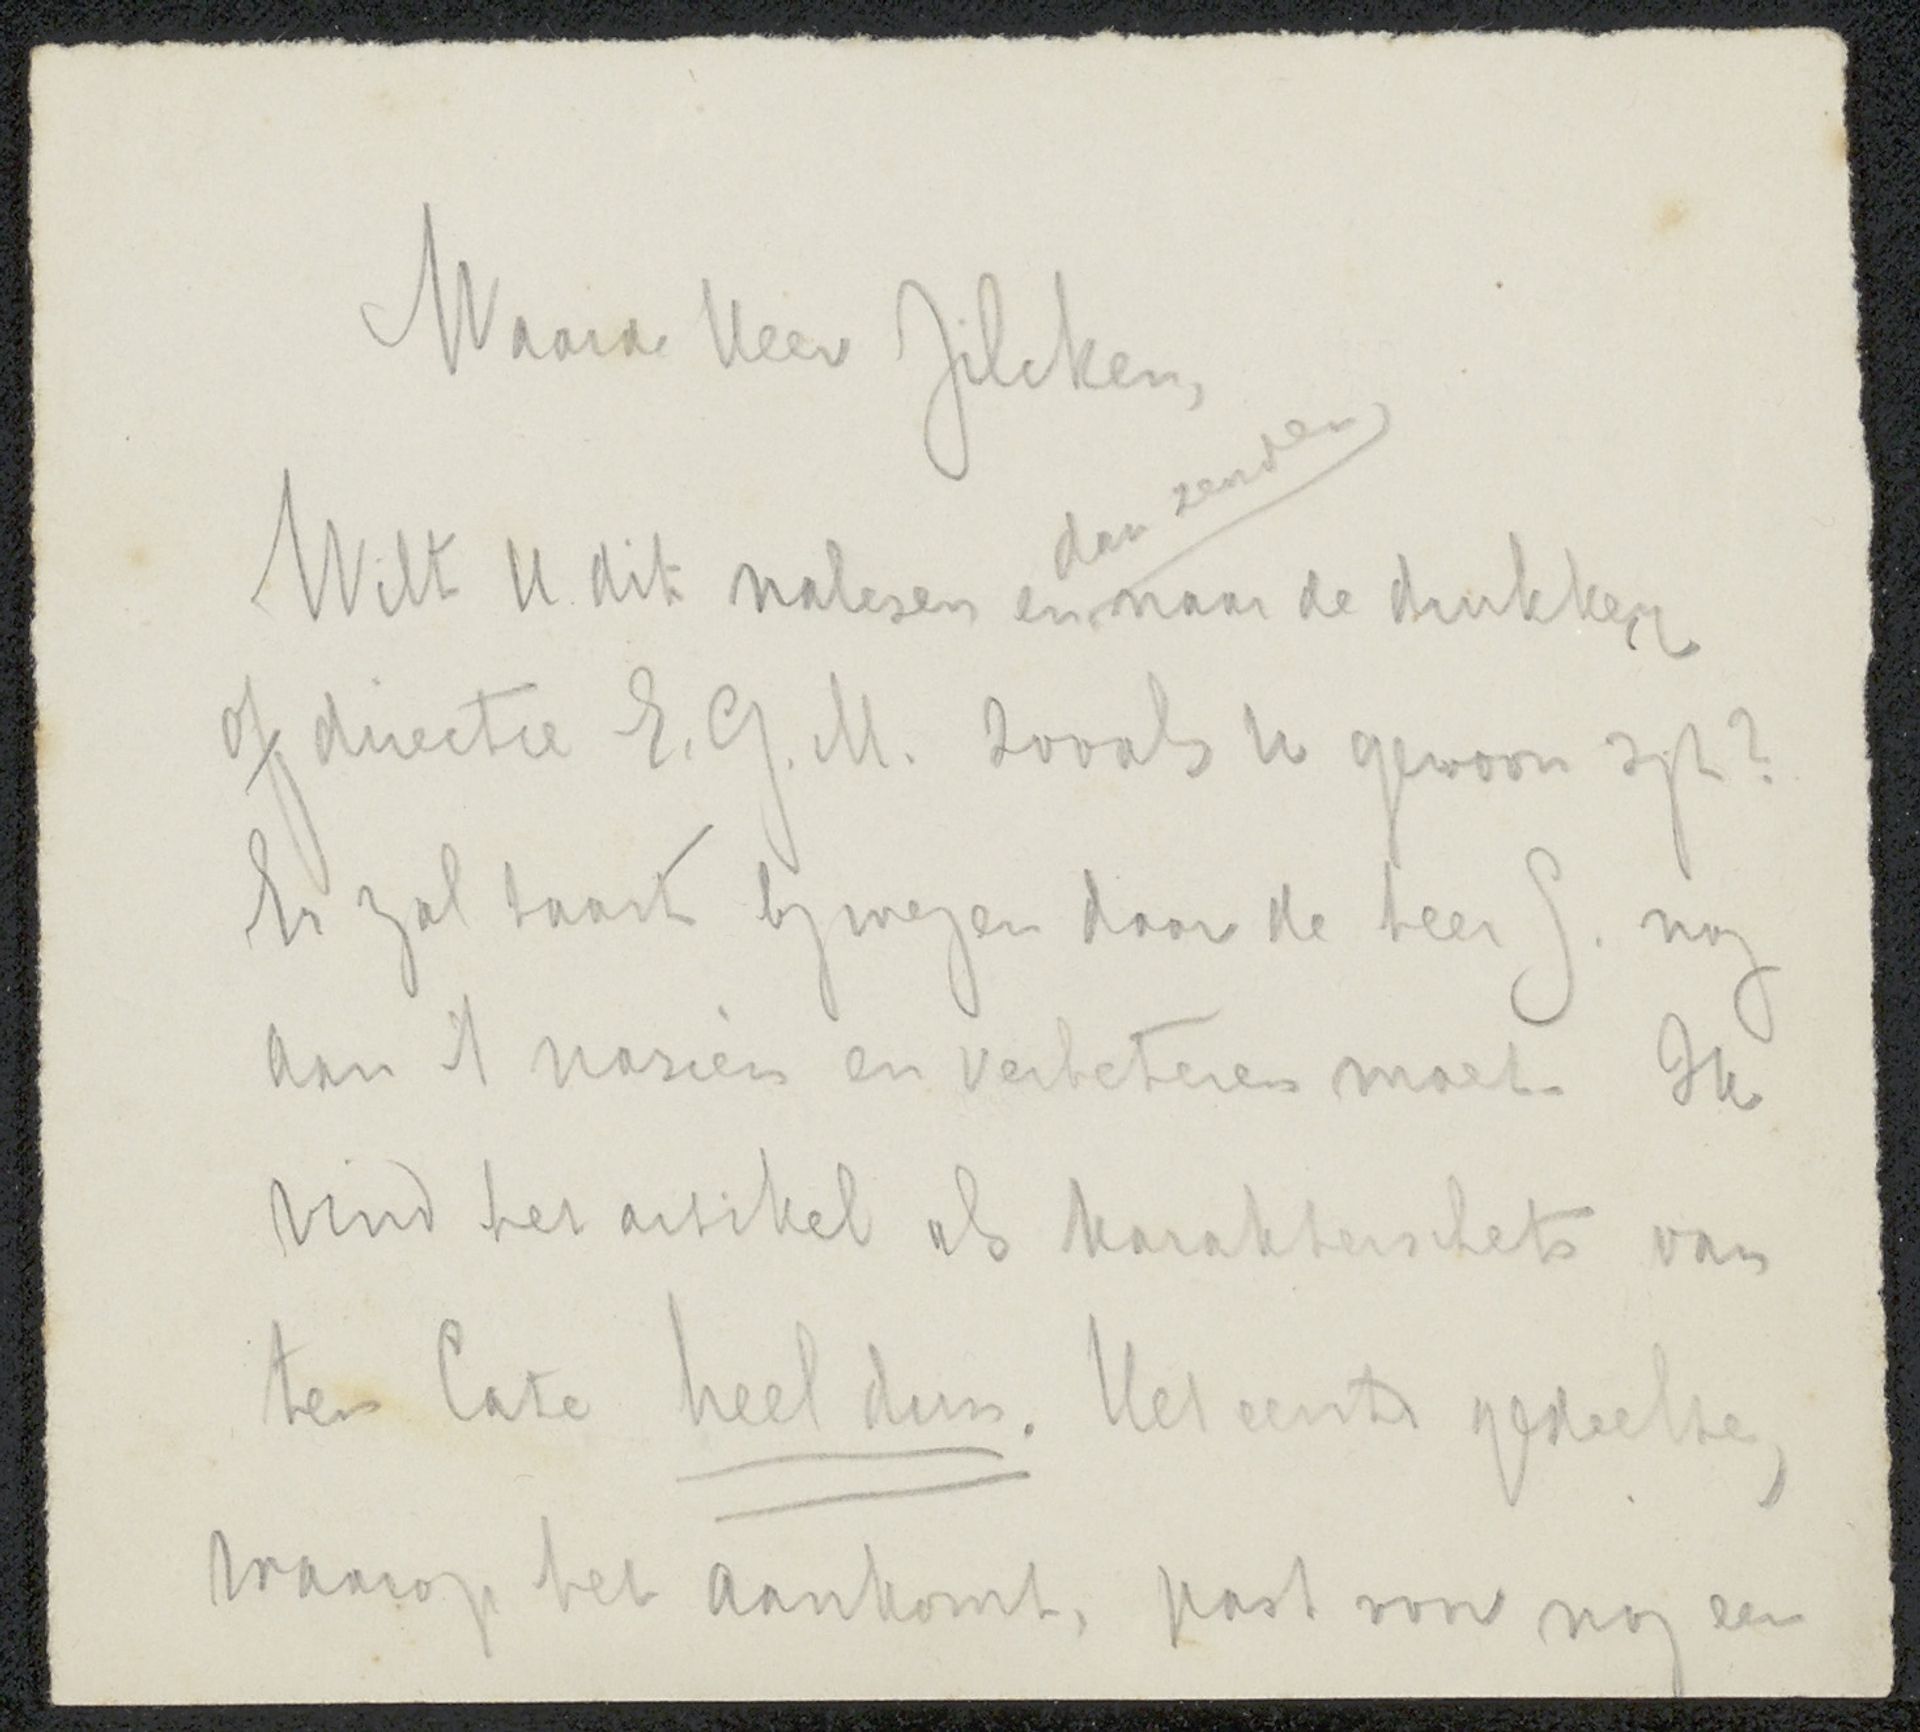 Waarde Heer Zilcken,
dan zenden
Wilt U dit nalezen en naar de drukker
of directie E.G.M. zooals U gewoon zijt?
Er zal haast bij wezen daar de heer G. nog
aan 't nazien en verbeteren moet. Ik
vind het artikel als karakterschets van
ten Cate heel dun. Het eerste gedeelte,
waarop het aankomt, past voor nog een